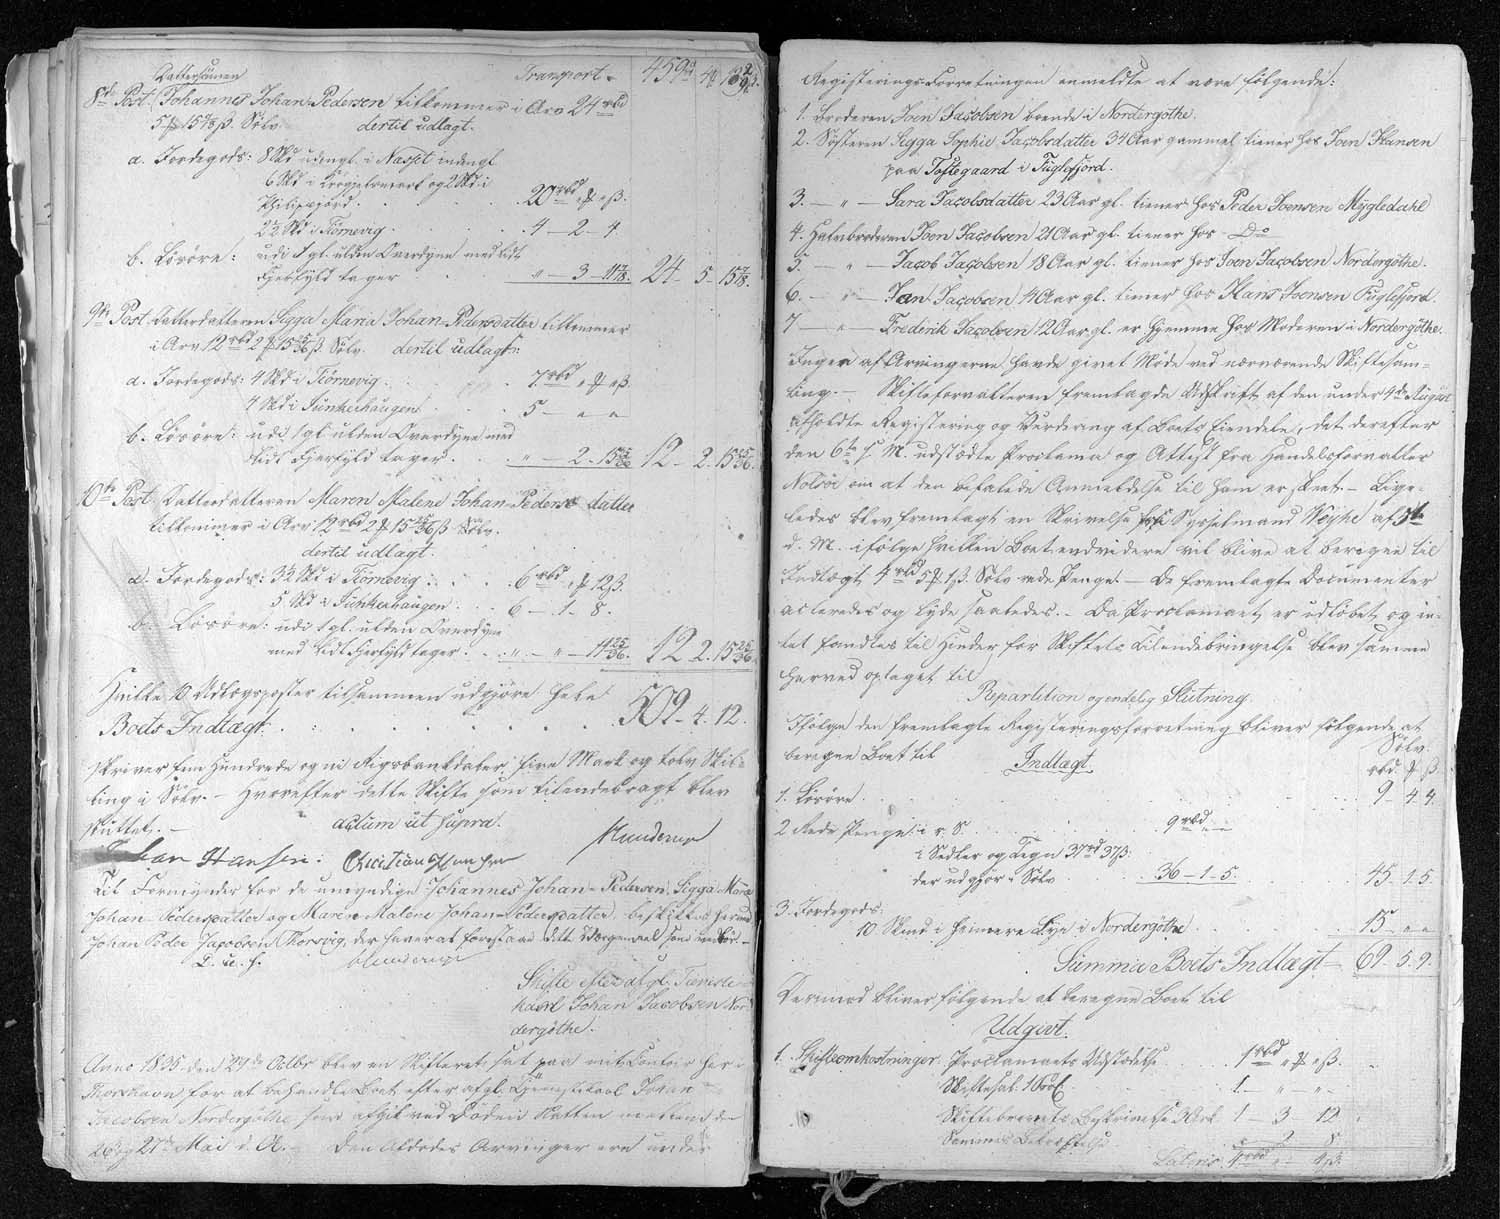 Dattersönnen Transport 459
8de Post. Johannes Johan-Pedersen tilkommer i Arv 24 rbd
5 15 ß. Sölv. dertil udlagt.
a. Jordegods: 8 Skd udengl. i
6 Skd i og 2 Skd i
. . . 20 rbd „ „ ß.
2½ Skd i Tiörnevig . . . 4 - 2 - 4.
b. Lösöre: udi 1 gl. ulden Overdyne med lidt
Fjerfyld tager . . „ - 3 - 11 7/8. 24 - 5 - 15 7/8.
9de Post Datterdatteren Sigga Maria Johan-Pedersdatter tilkommer
i Arv 12 rbd 2 15 ß. Sölv. dertil udlagt:
a. Jordegods: 4 Skd i Tiörnevig . . . 7 rbd „ „ ß.
4 Skd i Junkerhaugen . . 5 - „ „
b. Lösöre: udi 1 gl. ulden Overdyne med
lidt Fjerfyld tager . . „ - 2 - 15 25/36. 12 - 2 - 15 25/36.
10de Post Datterdatteren Maren Malene Johan-Peders datter
tilkommer i Arv 12 rbd 2 15 25/36 ß Sölv.
dertil udlagt.
a. Jordegods: 3½ Skd i Tiörnevig . . . 6 rbd „ 12 ß.
5 Skd i Junkerhaugen . . . 6 - 1 - 8.
b. Lösöre: udi 1 gl. ulden Overdyne
med lidt Fjerfyld tager . . . „ - „ - 11 25/36. 12. 2. 15 25/36.
Hvilke 10 Udlogsposter tilsammen udgjöre hele
Boets Indtægt . . . 509 - 4. 12.
skriver fem Hundrede og ni Rigsbankdaler, fire Mark og tolv Skil-
ling i Sölv. - Hvorefter dette Skifte som tilendebragt blev
sluttet. - actum ut supra.
Johan Hansen. Christian Hansen
Til Formynder for de umyndige Johannes Johan-Pedersen, Sigga Maria
Johan Pedersdatter og Maren Malene Johan-Pedersdatter beskikkes herved
Johan Peder Jacobsen Thorsvig, der haver at forestaae dette Værgemaal som vedbör. -
D. u. s.
Skifte efter afgl. Tieneste-
karl Johan Jacobsen Nor-
dergöthe.
Anno 1835 den 27de Octbr blev en Skifteret sat paa mit Contoir her i
Thorshavn for at behandle Boet efter afgl. Tjenestekarl Johan
Jacobsen Nordergöthe som afgik ved Döden Natten mellem den
26 og 27de Mai d. A. - Den Afdödes Arvinger ere under
Registerings-Forretningen anmeldte at være fölgende:
1. Broderen Joen Jacobsen boende i Nordergöthe.
2. Sösteren Sigga Sophie Jacobsdatter 34 Aar gammel tiener hos Joen Hansen
paa Toftegaard i Fuglefjord.
3. - „ - Sara Jacobsdatter 23 Aar gl. tiener hos Peder Joensen Mygledahl
4. Halvbroderen Joen Jacobsen 21 Aar gl. tiener hos - Do
5. - „ - Jacob Jacobsen 18 Aar gl. tiener hos Joen Jacobsen Nordergöthe.
6. - „ - Jan Jacobsen 14 Aar gl. tiener hos Hans Joensen Fuglefjord.
7 - „ - Frederik Jacobsen 12 Aar gl. er hjemme hos Moderen i Nordergöthe.
Ingen af Arvingerne havde givet Möde ved nærværende Skiftesam-
ling. - Skifteforvalteren fremlagde Udskrift af den under 4de August
afholdte Registering og Vurdering af Boets Eiendele, det derefter
den 6te s. M. udstædte Proclama og Attest fra Handelsforvalter
Nolsöe om at den befalede Anmeldelse til ham er skeet. - Lige-
ledes blev fremlagt en Skrivelse fra Sysselmand Weyhe af 5te
d. M. ifölge hvilken Boet endvidere vil blive at beregne til
Indtægt 4 rbd 5 1 ß. Sölv rede Penge. - De fremlagte Documenter
acteredes og lyde saaledes. - Da Proclamaet er udlöbet og in-
tet fandtes til Hinder for Skiftets Tilendebringelse blev samme
herved optaget til
Repartition og endelig Slutning.
Ifölge den fremlagte Registeringsforretning bliver fölgende at
beregne Boet til Indtægt. Sölv.
rbd. ß.
1. Lösöre . . . 9 - 4. 4.
2 Rede Penge: i r. S. . . . 9 rbd „ „
i Sedler og Tegn 37 rbd 37 ß.
der udgjör i Sölv . . 36 - 1 - 5. 45. 1. 5.
3. Jordegods:
10 Skind i Heimere Lye i Nordergöthe . . . 15 - „ „
Summa Boets Indtægt - 69. 5. 9.
Derimod bliver fölgende at beregne Boet til
Udgivt.
1. Skifteomkostninger. Proclamaets Udstædelse 1 rbd „ „ ß.
Skiftesal. 1 . . 1 - „ „
Skiftebrevets Beskrivelse 3 Ark 1 - 3 - 12
Sammes Bekræftelse 2 8
Lateris 4 rbd „ 4 ß.